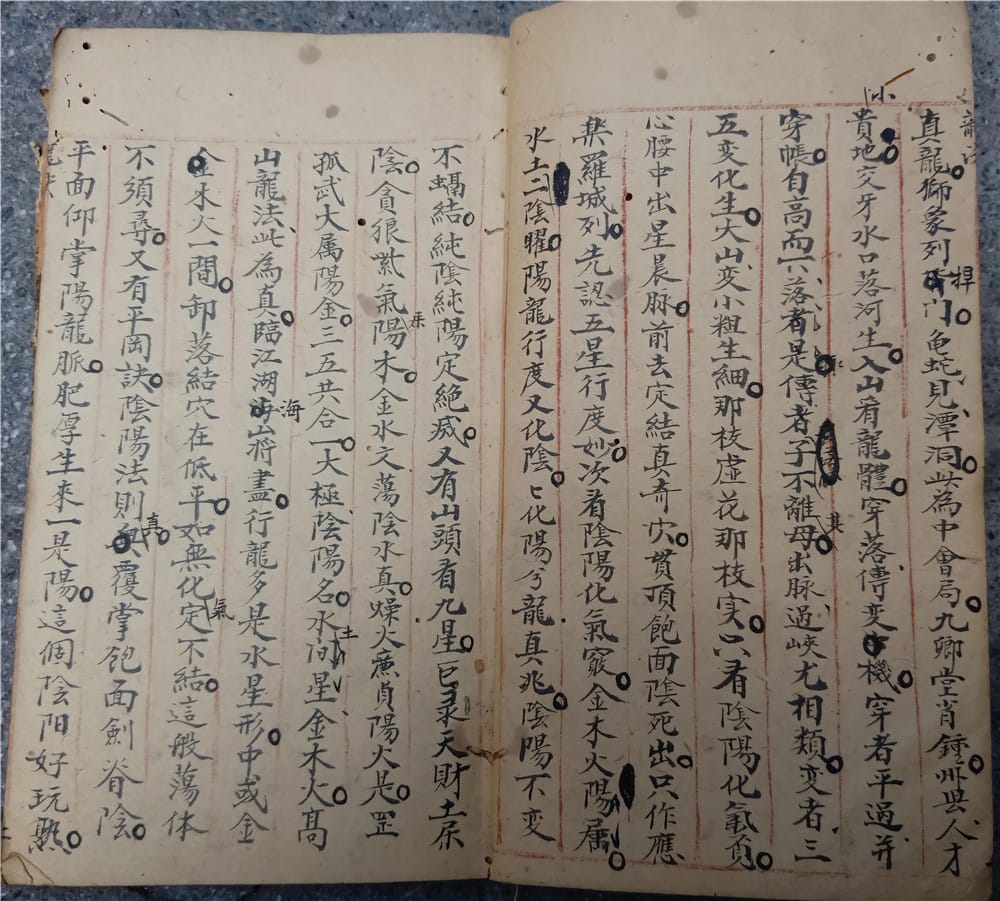 真龍獅象列捍門龜蛇見潭洞此為中會局九卿堂省鍾無與人才
貴地交牙水口落河生入山看龍體穿落傳變機穿者平過并
穿帳自高而下落者是傳者子不離母出脉過峽尤相類变者三
五变化生大山变小粗生細那枝虛花那枝实只看陰陽化氣質
心腰中出星晨脉前去定結真奇穴貫頂飽面陰死出只作應
樂羅城列先認五星行度妙次看陰陽化氣竅金木火陽属
水土二陰曜陽龍行度又化陰匕化陽兮龍真兆陰陽不变
不蝸結純陰純陽定絕灭又有山頭看九星巨彔天財土屎
陰貪狼紫氣陽木金水文蕩陰水真燥火廉貞陽火是罡
孤武大属陽金三五共合一大極陰陽名水土间星金木火高
山龍法此為真臨江湖海山將盡行龍多是水星形中或金
金木火一間卸落結穴在低平如無化氣定不結這般蕩体
不須尋又有平岡訣陰陽法則真覆掌飽面劍脊陰
平面仰掌陽龍脈肥厚生來一是陽這個陰阳好玩熟